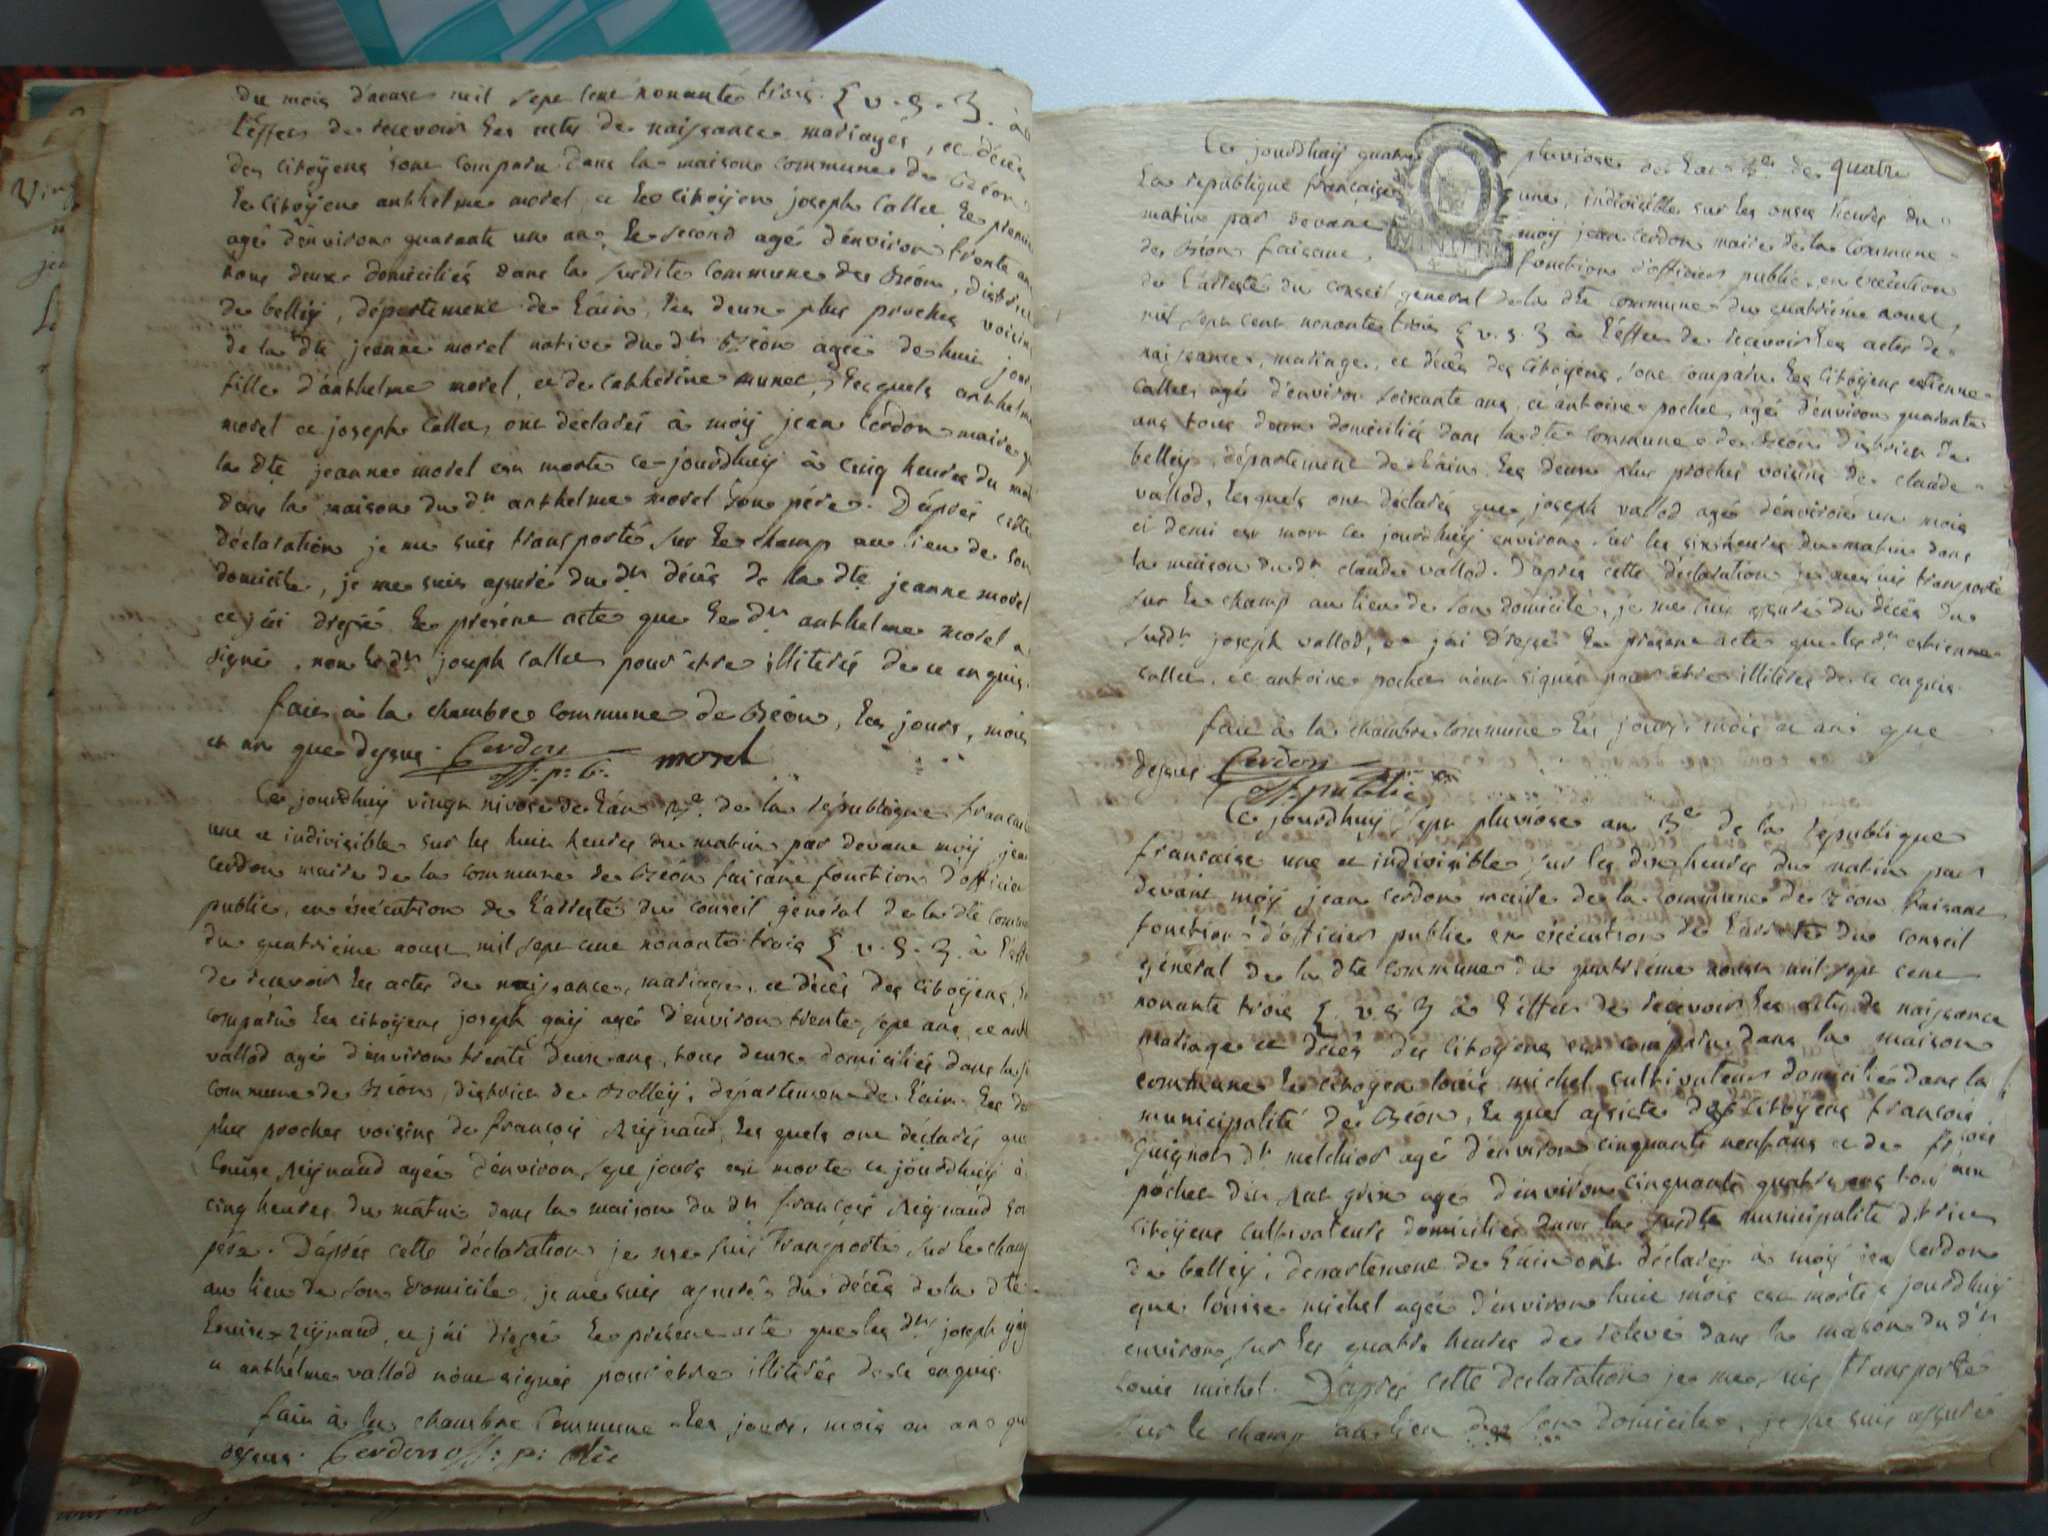 du mois d'aoust mil sept cent nonante trois { v. s. } à
l'effet de recevoir les actes de naissance mariages, et décès
des citoyens sont comparu dans la maison commune de Béon
le citoyen anthelme morel, et le citoyen joseph Callet le premier
agé d'environ quarante un an, le second agé d'environ trente an
tous deux domiciliés dans la susdite commune de Béon, district
de belley, département de l'ain, les deux plus proches voisins
de la dte jeanne morel native du dt Béon agée de huit jours
fille d'anthelme morel, et de catherine munet, lesquels anthelme
morel et joseph Callet, ont déclarés à moÿ jean Cerdon maire
la dte jeanne morel est morte ce jourdhuÿ à cinq heures du mat
dans la maison du dt anthelme morel son père. D'après cette
déclaration je me suis transporté sur le champ au lieu de son
domicile, je me suis assuré du dt décès de la dte jeanne morel
et j'ai dressé le présent acte que le dt anthelme morel a
signé, non le dt joseph callet pour être illiterés de ce enquis.
fait à la chambre commune de Béon, les jours, mois
et an que dessus. Cerdon off. p. b. morel
Ce jourdhuÿ vingt nivose de l'an 3e. de la république français
une et indivisible sur les huit heures du matin par devant moÿ jean
cerdon maire de la commune de Béon faisant fonction d'officier
public, en éxécution de l'arresté du conseil général de la dte commu
du quatrième aoust mil sept cent nonante trois { v. s. } à l'eff
de recevoir les actes de naissance, mariage, et décès des citoyens,
comparu les citoyens joseph guÿ agé d'environ trente sept ans, et anth
vallod agé d'environ trente deux ans, tous deux domiciliés dans la
commune de Béon, district de Belleÿ, département de l'ain les d
plus proches voisins de françois Reÿnaud, les quels ont déclarés que
louise Reÿnaud agée d'environ sept jours est morte ce jourdhuÿ à
cinq heures du matin dans la maison du dt françois Reÿnaud son
père. D'après cette déclaration je me suis Transporté sur le champ
au lieu de son Domicile, je me suis assuré du décès de la dte
louise Reÿnaud, et j'ai dressé le présent acte que les dts joseph guÿ
et anthelme vallod n'ont signés pour être illiterés de ce enquis.
fait à la chambre Commune les jours, mois ou an que
dessus. Cerdon off: p: blic
Ce jourdhuÿ quatre pluviose de l'an 3e de quatre
la république française une, indivisible sur les onze heures du
matin par devant moÿ jean cerdon maire de la Commune
MINUTE
de Béon faisant fonction d'officier public, en éxécution
de l'arresté du conseil général de la dte commune du quatrième aoust,
mil sept cent nonante trois { v. s. } à l'effet de recevoir les actes de
naissance, mariage, et décès des citoyens, sont comparu les citoyens estienne
callet agé d'environ soixante ans, et antoine pochet agé d'environ quarante
ans tous deux domiciliés dans la dte commune de Béon district de
belley, département de l'ain les deux plus proches voisins de claude
vallod, lesquels ont déclarés que joseph vallod agé d'environ un mois
et demi est mort ce jourdhuÿ environ sur les six heures du matin dans
la maison du dt claude vallod. D'après cette déclaration je me suis transporté
sur le champ au lieu de son domicile, je me suis assuré du décès du
susdt joseph vallod, et j'ai dressé le présent acte que les dts estienne
callet, et antoine pochet n'ont signés pour être illiterés de ce enquis.
fait à la chambre commune les jours, mois et ans que
dessus Cerdon off. public
Ce jourdhuÿ sept pluviose an 3e de la république
française une et indivisible, sur les dix heures du matin par
devant moÿ jean cerdon maire de la commune de Béon faisant
fonction d'officier public en éxécution de l'arresté du conseil
général de la dte commune du quatrième aoust mil sept cent
nonante trois { v. s. } à l'effet de recevoir les actes de naissance
mariage et décès des citoyens est comparu dans la maison
commune le citoyen louis michel cultivateur domicilié dans la
municipalité de Béon, le quel assisté des citoyens françois
Guignot dt melchior agé d'environ cinquante neuf ans et de frçois
pochet dit agé d'environ cinquante quatre ans tous deux
citoyens cultivateurs domiciliés dans la susdte municipalité district
de belleÿ, département de l'ain ont déclarés à moÿ jean cerdon
que louise michel agée d'environ huit mois est morte ce jourdhuÿ
environ sur les quatre heures de relevé dans la maison du dt
louis michel. D'après cette déclaration je me suis transporté
sur le champ au lieu de son domicile, je me suis assuré